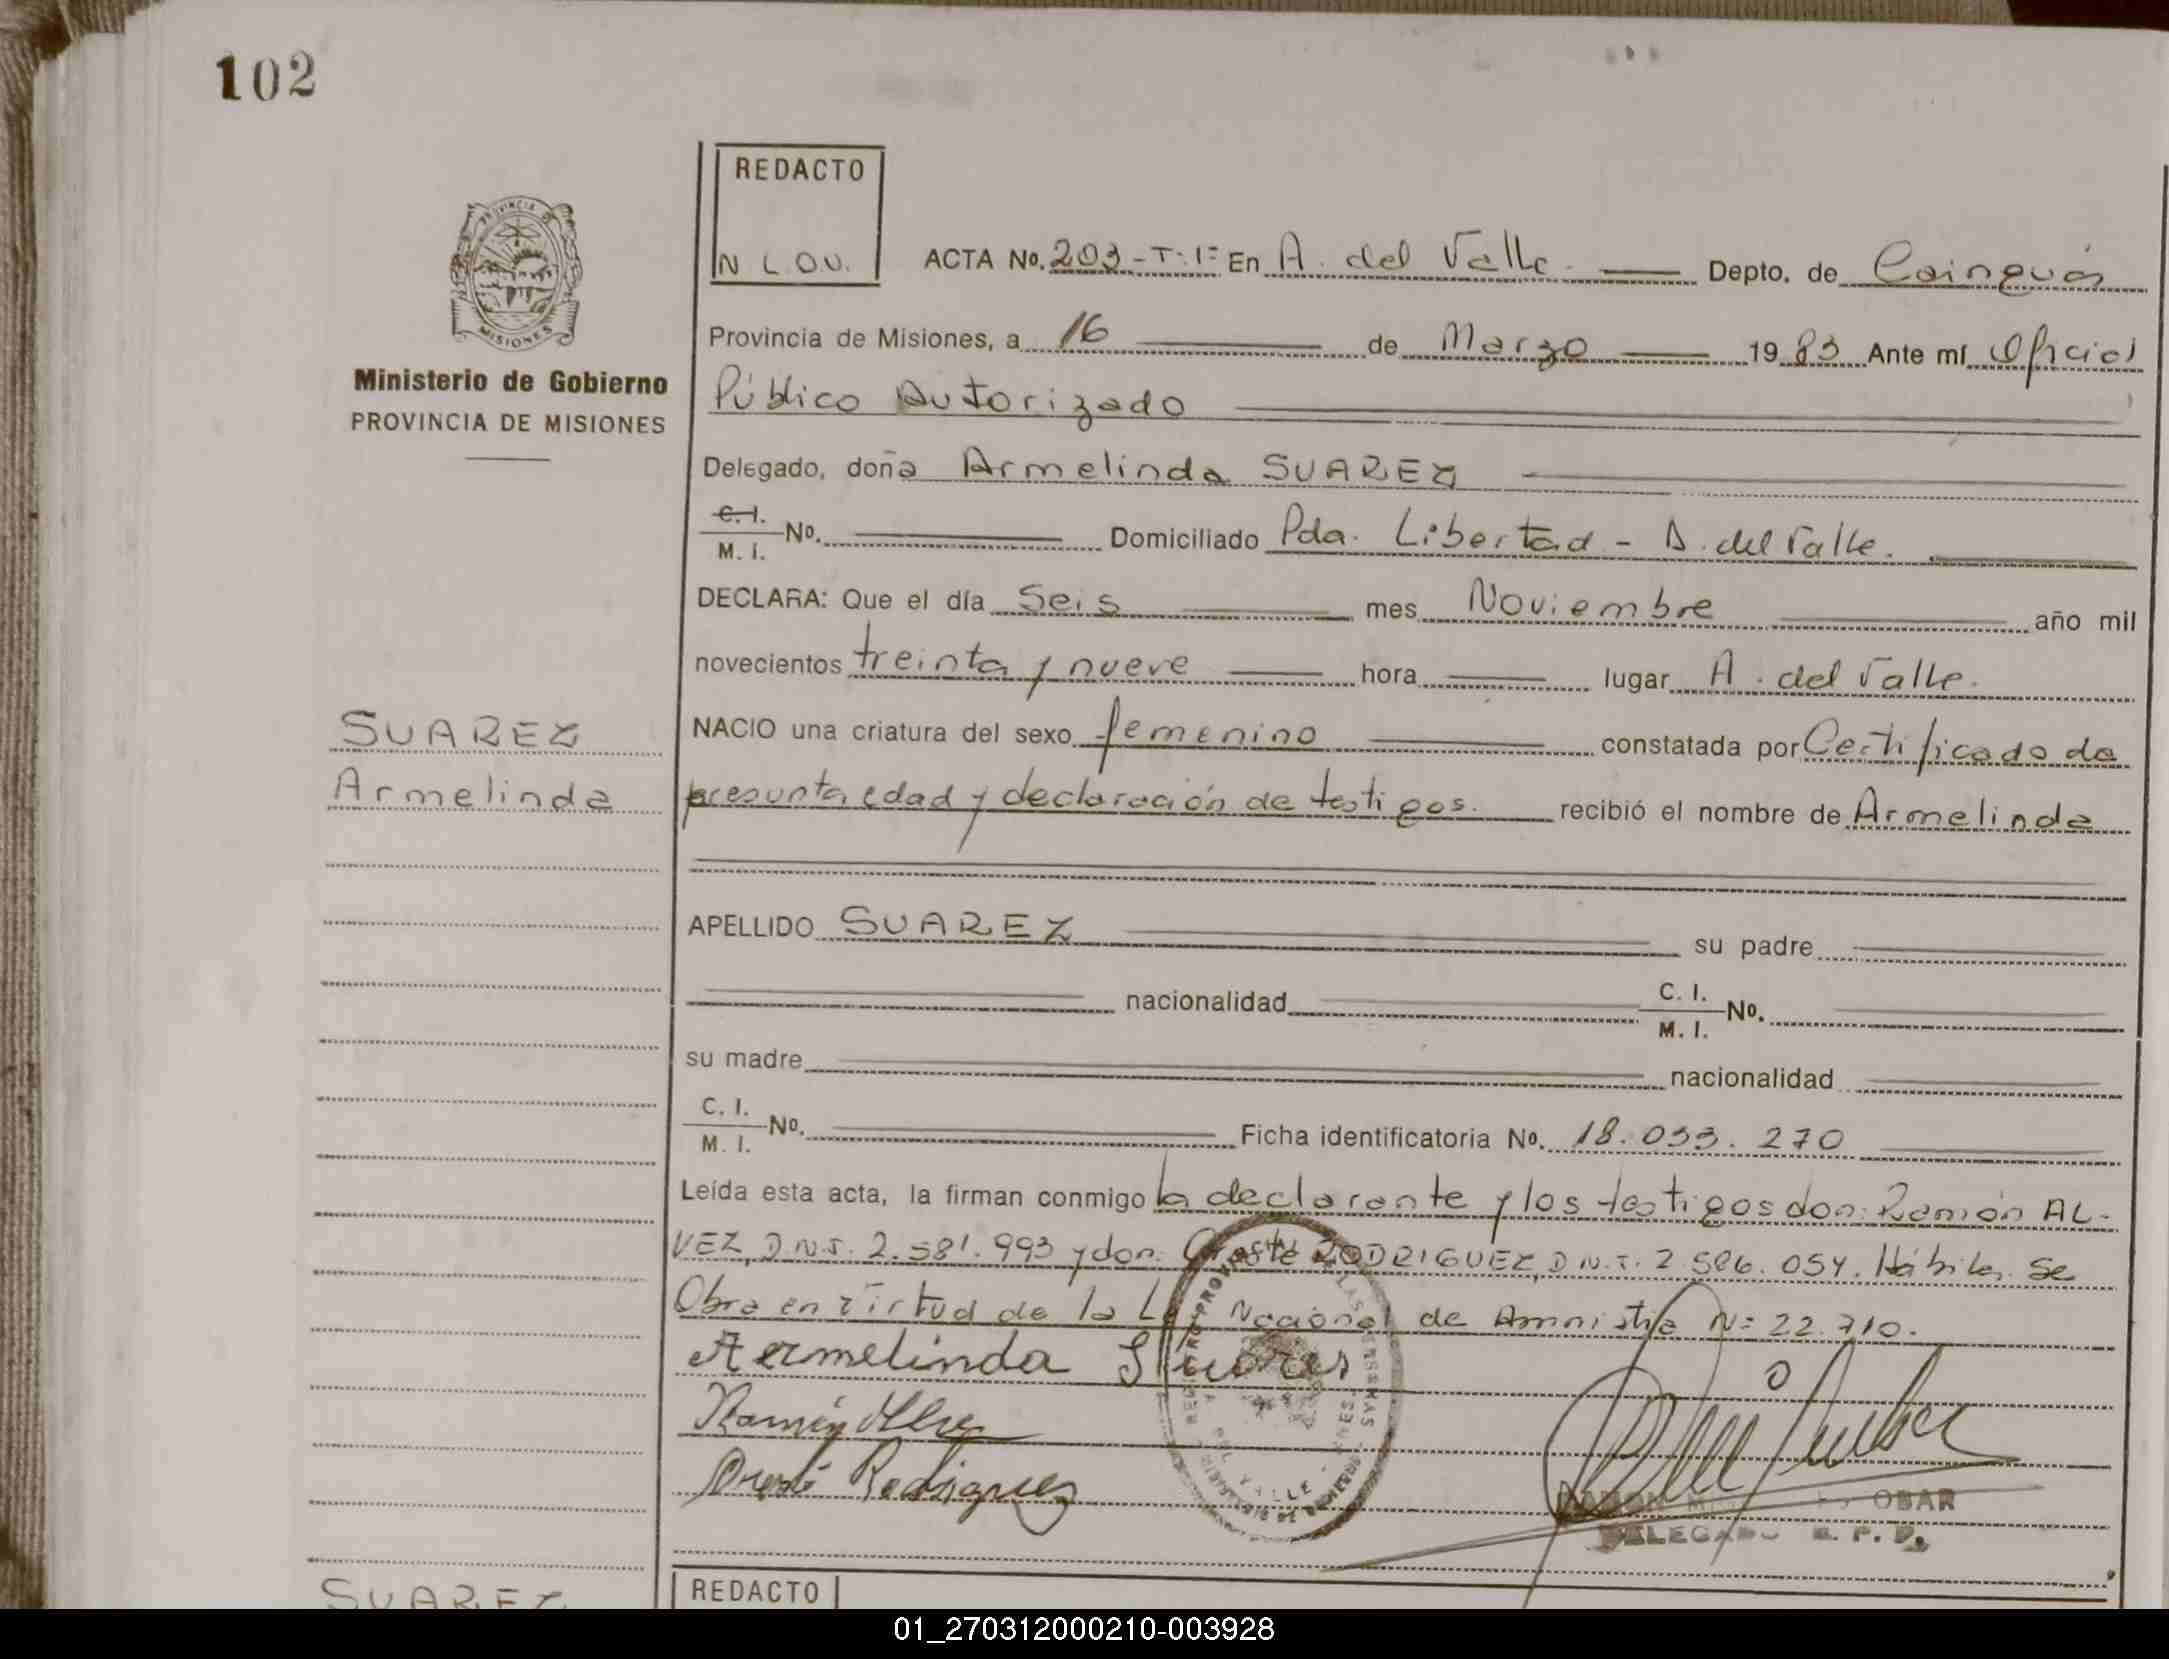 102
REDACTO
N L O V.
PROVINCIA DE
MISIONES
Ministerio de Gobierno
PROVINCIA DE MISIONES
ACTA No. 203-T:1= En A. del Valle Depto. de Cainguás
Provincia de Misiones, a 16 de Marzo 1983 Ante mí Oficial
Público Autorizado
Delegado, doña Armelinda SUAREZ
C. I. / M. I. No. Domiciliado Pda. Libertad - A. del Valle.
DECLARA: Que el día Seis mes Noviembre año mil
novecientos treinta y nueve hora lugar A. del Valle.
SUAREZ
Armelinda
NACIO una criatura del sexo femenino constatada por Certificado de
presunta edad y declaración de testigos. recibió el nombre de Armelinda
APELLIDO SUAREZ su padre
nacionalidad C. I. / M. I. No.
su madre nacionalidad
C. I. / M. I. No. Ficha identificatoria No. 18.033.270
Leída esta acta, la firman conmigo la declarante y los testigos don: Ramón AL-
VEZ, D.N.I. 2.581.993 y don: RODRIGUEZ, D.N.I. 2.586.054. Hábiles. Se
Obra en virtud de la Ley Nacional de Amnistía N= 22.710.
Armelinda Suares
Ramón Alvez
Rodriguez
A. DEL VALLE
OBAR
DELEGADO R. P. P.
SUAREZ
REDACTO
01_270312000210-003928